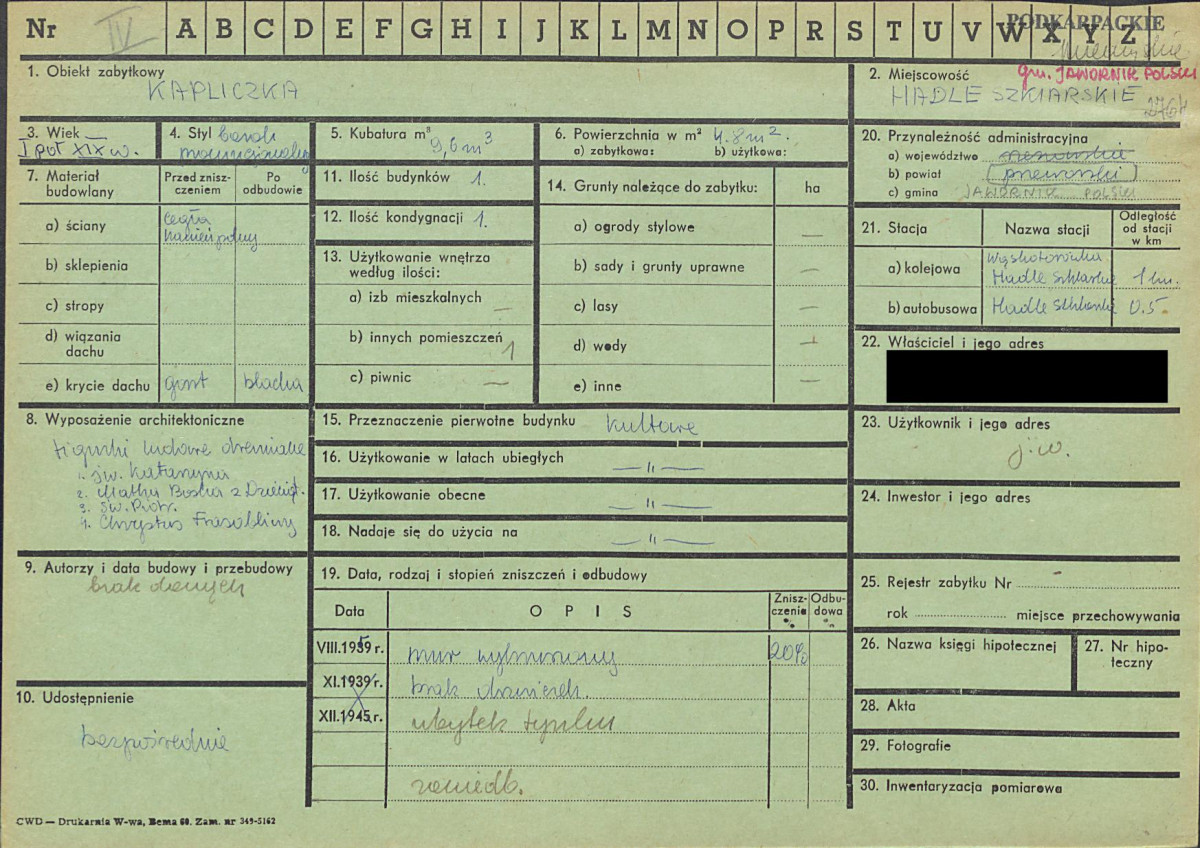 Nr IV A B C D E F G H I J K L M N O P R S T U V W X Y Z
PODKARPACKIE
gm. JAWORNIK POLSKI
1. Obiekt zabytkowy
KAPLICZKA
2. Miejscowość
HADLE SZKLARSKIE
3. Wiek
I poł XIX w.
4. Styl barok
prowincjonalny
5. Kubatura m³
9,6 m³
6. Powierzchnia w m² 4.8 m².
a) zabytkowa: b) użytkowa:
7. Materiał budowlany
Przed znisz-
czeniem
Po
odbudowie
a) ściany
cegła
kamień polny
b) sklepienia
c) stropy
d) wiązania
dachu
e) krycie dachu gont blacha
8. Wyposażenie architektoniczne
figurki ludowe drewniane
1. św. Katarzyna
2. Matka Boska z Dzieciąt.
3. św. Piotr.
4. Chrystus Frasobliwy
9. Autorzy i data budowy i przebudowy
brak danych
10. Udostępnienie
bezpośrednie
11. Ilość budynków 1.
12. Ilość kondygnacji 1.
13. Użytkowanie wnętrza
według ilości:
a) izb mieszkalnych —
b) innych pomieszczeń 1
c) piwnic —
14. Grunty należące do zabytku: ha
a) ogrody stylowe —
b) sady i grunty uprawne —
c) lasy —
d) wody —
e) inne —
15. Przeznaczenie pierwotne budynku kultowe
16. Użytkowanie w latach ubiegłych —"—
17. Użytkowanie obecne —"—
18. Nadaje się do użycia na —"—
19. Data, rodzaj i stopień zniszczeń i odbudowy
Data OPIS Znisz-
czenia
%
Odbu-
dowa
%
VIII.1959 r. mur wybrzuszony 20%
XI.1939 r. brak drzwiczek.
XII.1945 r. ubytek tynku
zaniedb.
20. Przynależność administracyjna
a) województwo rzeszowskie
b) powiat (przeworski)
c) gmina JAWORNIK POLSKI
21. Stacja Nazwa stacji Odległość
od stacji
w km
a) kolejowa Wąskotorówka
Hadle Szklarskie 1 km.
b) autobusowa Hadle Szklarskie 0.5
22. Właściciel i jego adres
23. Użytkownik i jego adres
j.w.
24. Inwestor i jego adres
25. Rejestr zabytku Nr
rok miejsce przechowywania
26. Nazwa księgi hipotecznej
27. Nr hipo-
teczny
28. Akta
29. Fotografie
30. Inwentaryzacja pomiarowa
CWD — Drukarnia W-wa, Bema 60. Zam. nr 349-5162